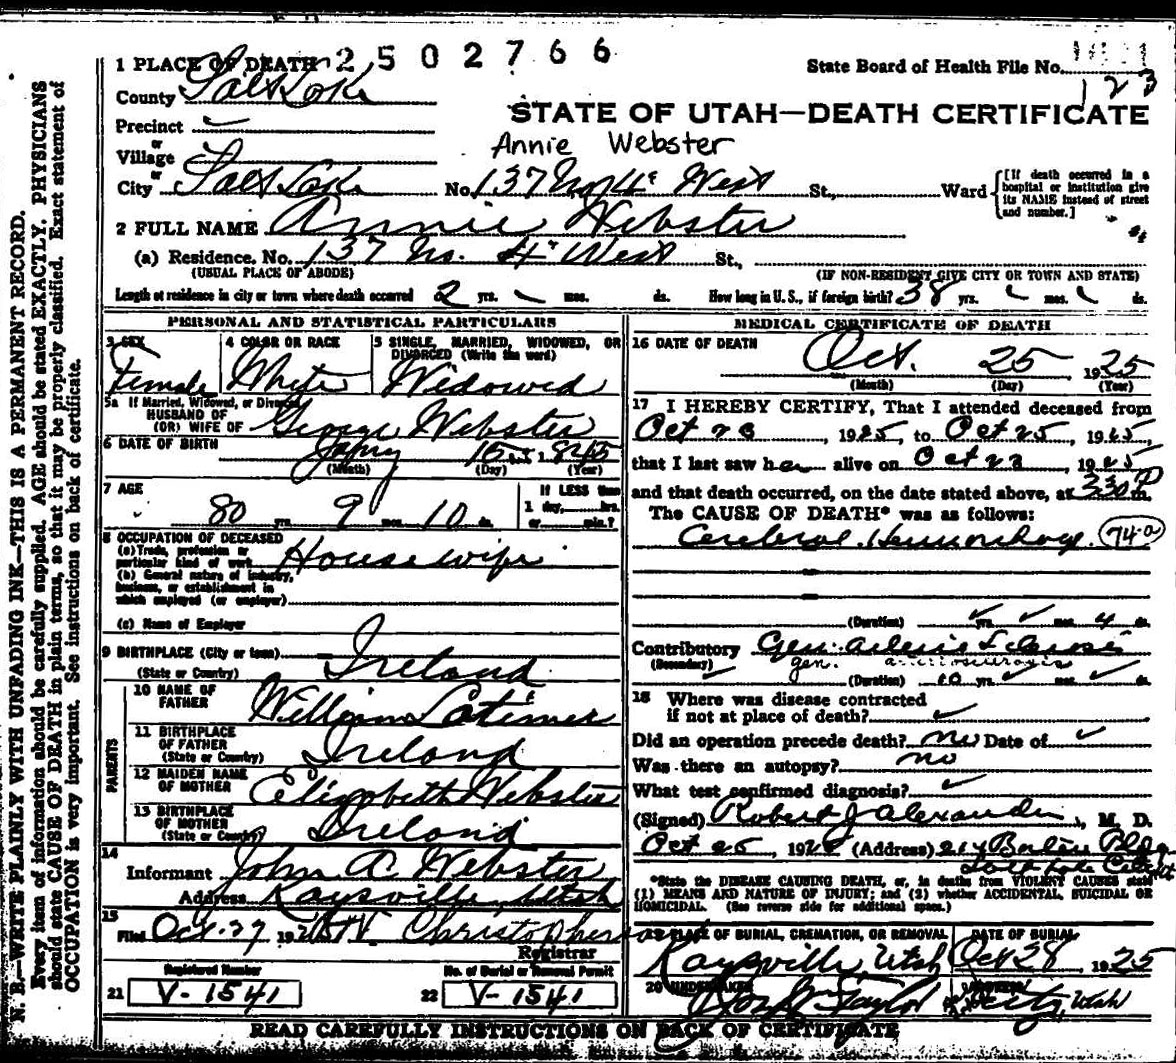 1 PLACE OF DEATH 2 5 0 2 7 6 6
State Board of Health File No.
County Salt Lake
123
STATE OF UTAH—DEATH CERTIFICATE
Precinct
or
Village
Annie Webster
or
City Salt Lake No. 137 No 4" West St., Ward
[If death occurred in a hospital or institution give its NAME instead of street and number.]
2 FULL NAME Annie Webster
(a) Residence, No. 137 No. 4" West St.,
(USUAL PLACE OF ABODE) (IF NON-RESIDENT GIVE CITY OR TOWN AND STATE)
Length of residence in city or town where death occurred 2 yrs. mos. ds. How long in U. S., if foreign birth? 38 yrs. mos. ds.
PERSONAL AND STATISTICAL PARTICULARS
3 SEX
Female
4 COLOR OR RACE
White
5 SINGLE, MARRIED, WIDOWED, OR DIVORCED (Write the word)
Widowed
5a If Married, Widowed, or Divorced
HUSBAND OF
(OR) WIFE OF George Webster
6 DATE OF BIRTH Jany 15 1845
(Month) (Day) (Year)
7 AGE
80 yrs. 9 mos. 10 ds.
If LESS than
1 day, hrs.
or min.?
8 OCCUPATION OF DECEASED
(a) Trade, profession or
particular kind of work Housewife
(b) General nature of industry,
business, or establishment in
which employed (or employer)
(c) Name of Employer
9 BIRTHPLACE (City or town)
(State or Country) Ireland
PARENTS
10 NAME OF
FATHER William Latimer
11 BIRTHPLACE
OF FATHER
(State or Country) Ireland
12 MAIDEN NAME
OF MOTHER Elizabeth Webster
13 BIRTHPLACE
OF MOTHER
(State or Country) Ireland
14
Informant John A. Webster
Address Kaysville, Utah
15
Filed Oct. 27 192 Christopherson
Registrar
Registered Number No. of Burial or Removal Permit
21 V-1541 22 V-1541
MEDICAL CERTIFICATE OF DEATH
16 DATE OF DEATH
Oct. 25 1925
(Month) (Day) (Year)
17 I HEREBY CERTIFY, That I attended deceased from
Oct 23, 1925, to Oct 25, 1925,
that I last saw her alive on Oct 23 1925
and that death occurred, on the date stated above, at 330 P m.
The CAUSE OF DEATH* was as follows:
Cerebral Hemorrhage 74-a
(Duration) yrs. mos. 4 ds.
Contributory Gen. arterio Sclerosis
(Secondary) gen. arteriosclerosis
(Duration) 10 yrs. mos. ds.
18 Where was disease contracted
if not at place of death?
Did an operation precede death? no Date of
Was there an autopsy? no
What test confirmed diagnosis?
(Signed) Robert J Alexander, M. D.
Oct 25, 192 (Address) 214 Bldg
Salt Lake City
*State the DISEASE CAUSING DEATH, or, in deaths from VIOLENT CAUSES state
(1) MEANS AND NATURE OF INJURY; and (2) whether ACCIDENTAL, SUICIDAL OR
HOMICIDAL. (See reverse side for additional space.)
19 PLACE OF BURIAL, CREMATION, OR REMOVAL DATE OF BURIAL
Kaysville, Utah Oct 28 1925
20 UNDERTAKER ADDRESS
Taylor City, Utah
READ CAREFULLY INSTRUCTIONS ON BACK OF CERTIFICATE
N. B.—WRITE PLAINLY WITH UNFADING INK—THIS IS A PERMANENT RECORD.
Every item of information should be carefully supplied. AGE should be stated EXACTLY. PHYSICIANS
should state CAUSE OF DEATH in plain terms, so that it may be properly classified. Exact statement of
OCCUPATION is very important. See instructions on back of certificate.